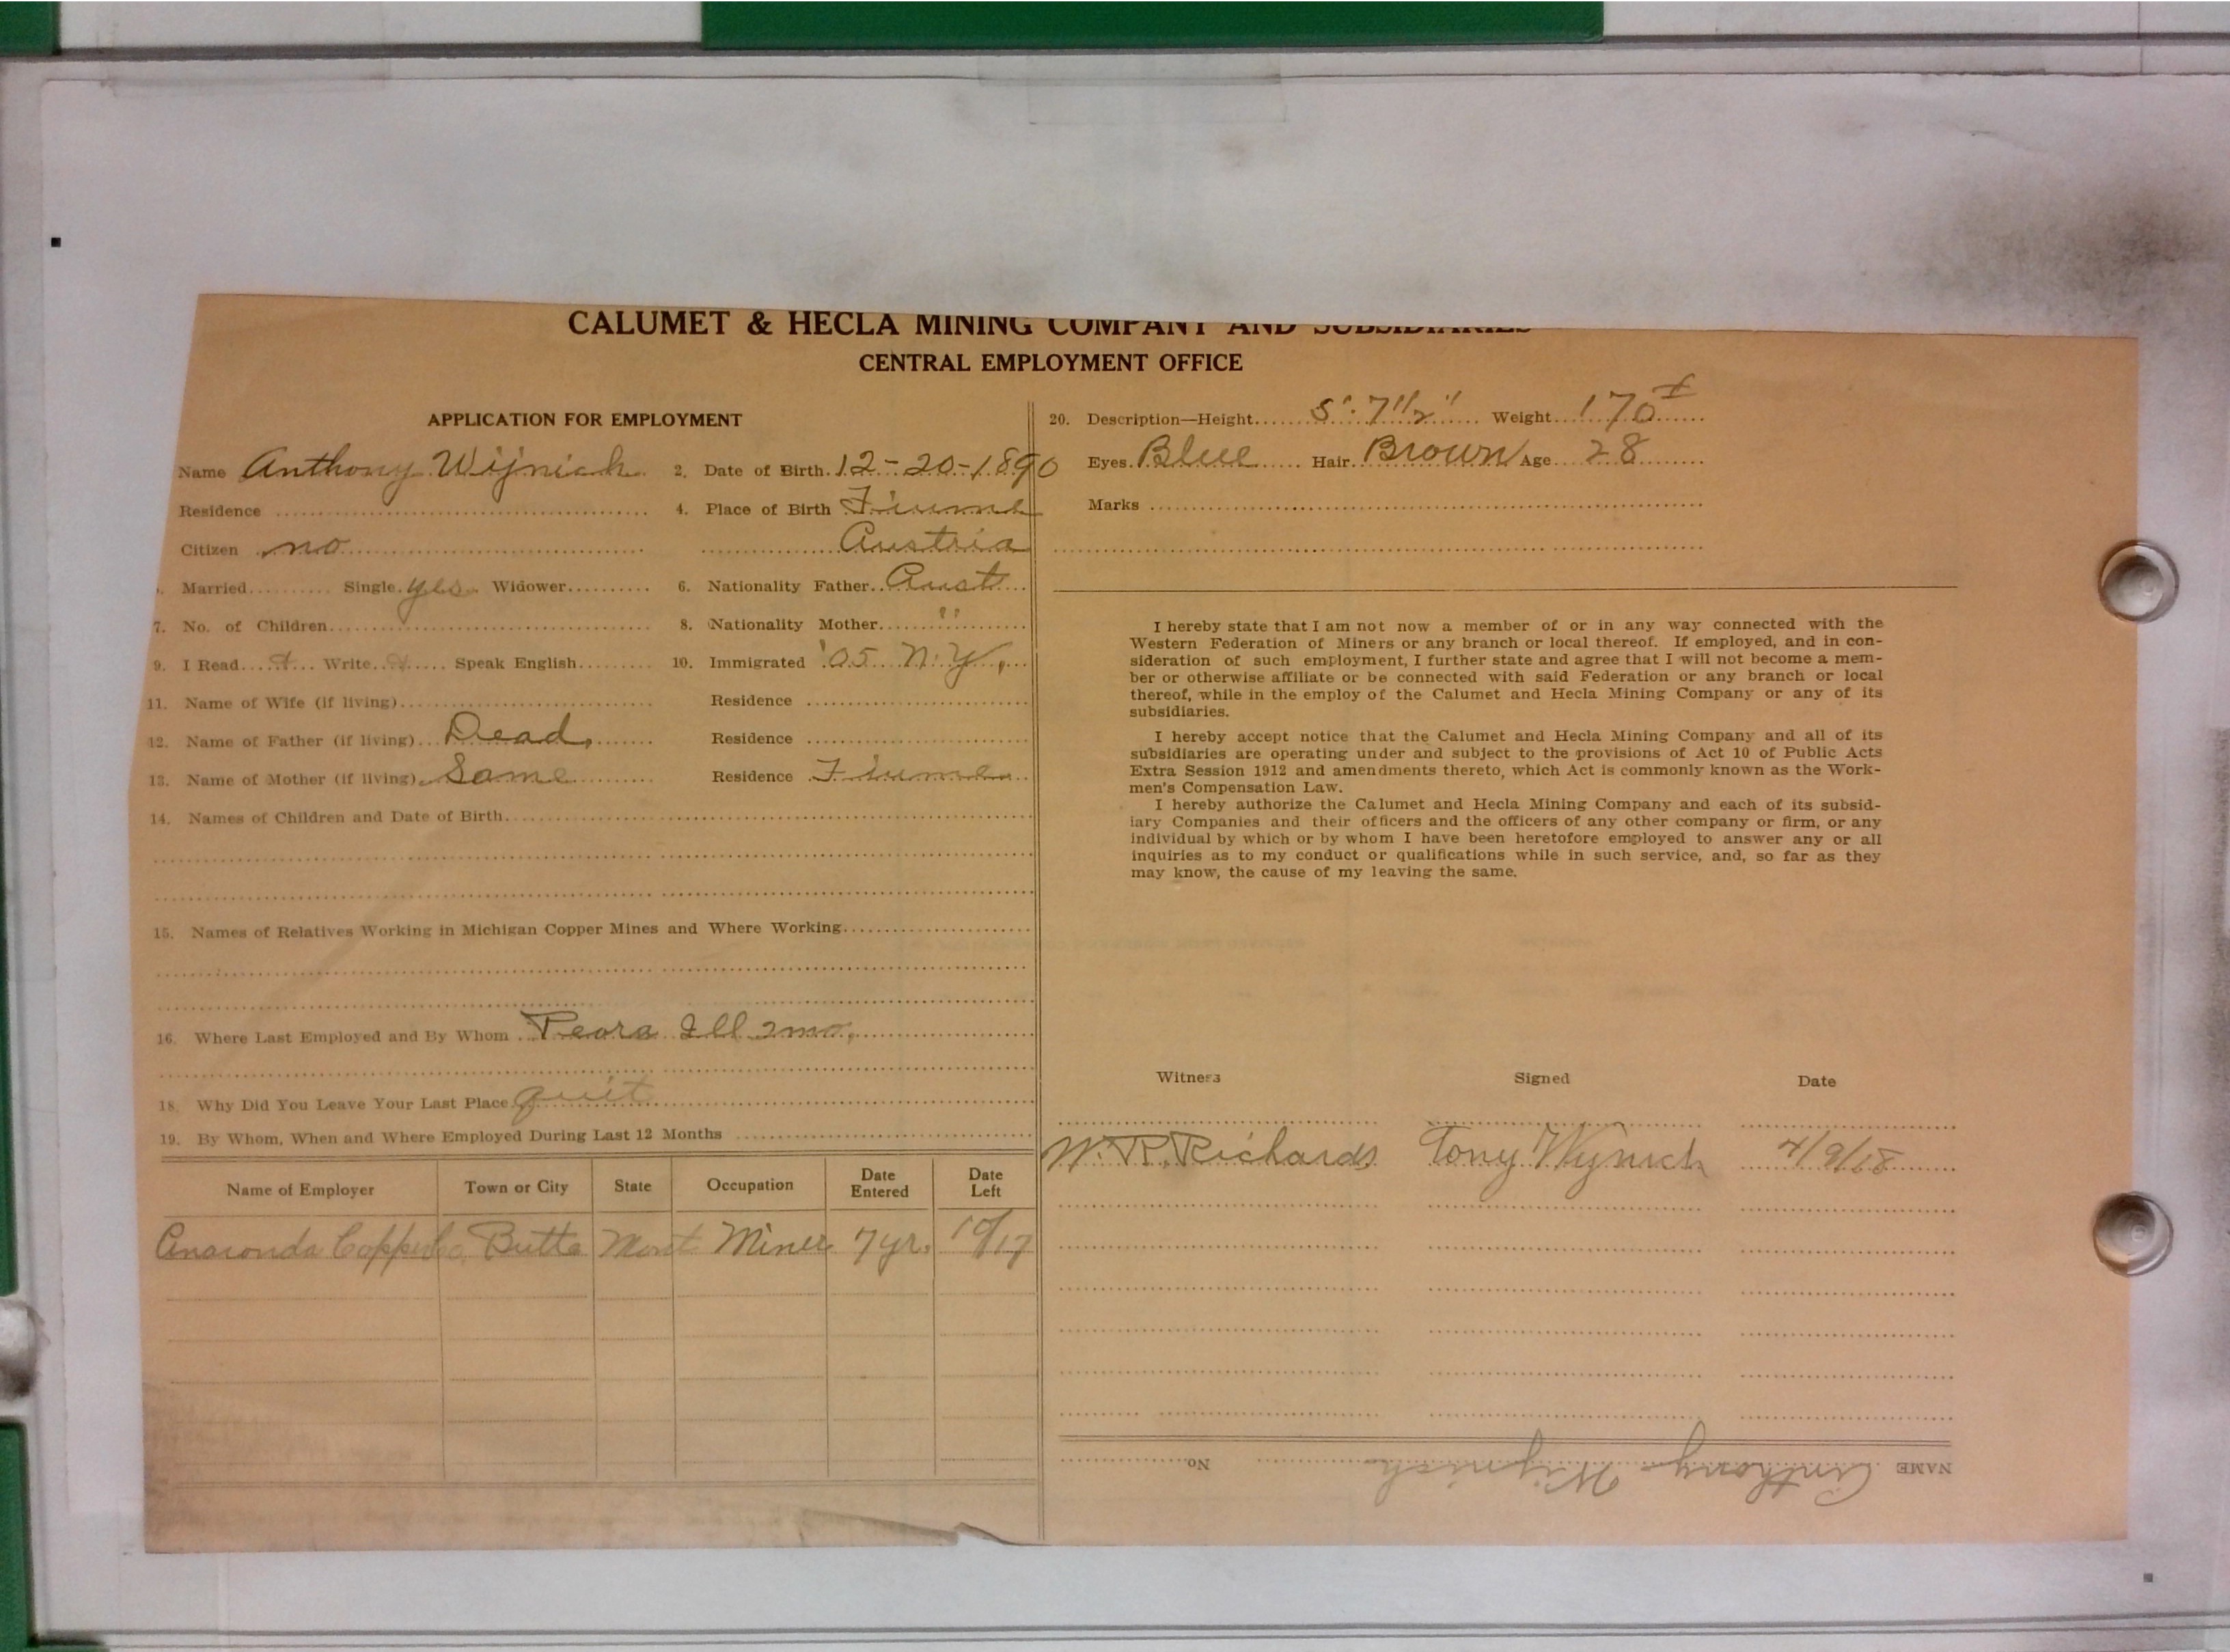 CALUMET & HECLA MINING COMPANY AND SUBSIDIARIES
CENTRAL EMPLOYMENT OFFICE
APPLICATION FOR EMPLOYMENT
Name Anthony Wijnich 2. Date of Birth 12-20-1890
Residence 4. Place of Birth Fiume
Citizen no Austria
Married Single yes Widower 6. Nationality Father Aust
7. No. of Children 8. Nationality Mother "
9. I Read Write Speak English 10. Immigrated '05 N.Y.
11. Name of Wife (if living) Residence
12. Name of Father (if living) Dead Residence
13. Name of Mother (if living) Same Residence Fiume
14. Names of Children and Date of Birth
15. Names of Relatives Working in Michigan Copper Mines and Where Working
16. Where Last Employed and By Whom Peora Ill 2 mo.
18. Why Did You Leave Your Last Place quit
19. By Whom, When and Where Employed During Last 12 Months
Name of Employer Town or City State Occupation Date Entered Date Left
Anaconda Copper Co Butte Mont Miner 7 yr. 10/17
20. Description—Height 5'. 7 1/2" Weight 170
Eyes Blue Hair Brown Age 28
Marks
I hereby state that I am not now a member of or in any way connected with the
Western Federation of Miners or any branch or local thereof. If employed, and in con-
sideration of such employment, I further state and agree that I will not become a mem-
ber or otherwise affiliate or be connected with said Federation or any branch or local
thereof, while in the employ of the Calumet and Hecla Mining Company or any of its
subsidiaries.
I hereby accept notice that the Calumet and Hecla Mining Company and all of its
subsidiaries are operating under and subject to the provisions of Act 10 of Public Acts
Extra Session 1912 and amendments thereto, which Act is commonly known as the Work-
men's Compensation Law.
I hereby authorize the Calumet and Hecla Mining Company and each of its subsid-
iary Companies and their officers and the officers of any other company or firm, or any
individual by which or by whom I have been heretofore employed to answer any or all
inquiries as to my conduct or qualifications while in such service, and, so far as they
may know, the cause of my leaving the same.
Witness Signed Date
W. R. Richards Tony Wijnich 4/9/18
NAME Anthony Wijnich No.